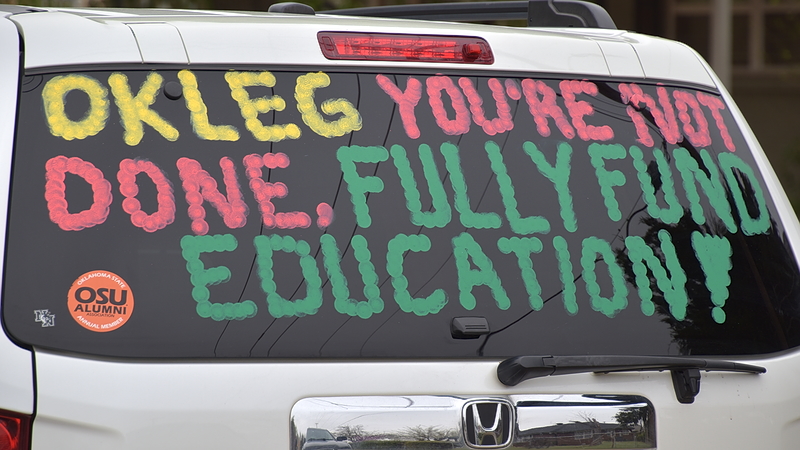 OKLEG YOU'RE NOT
DONE. FULLY FUND
EDUCATION!
OKLAHOMA STATE
OSU
ALUMNI
ASSOCIATION
ANNUAL MEMBER